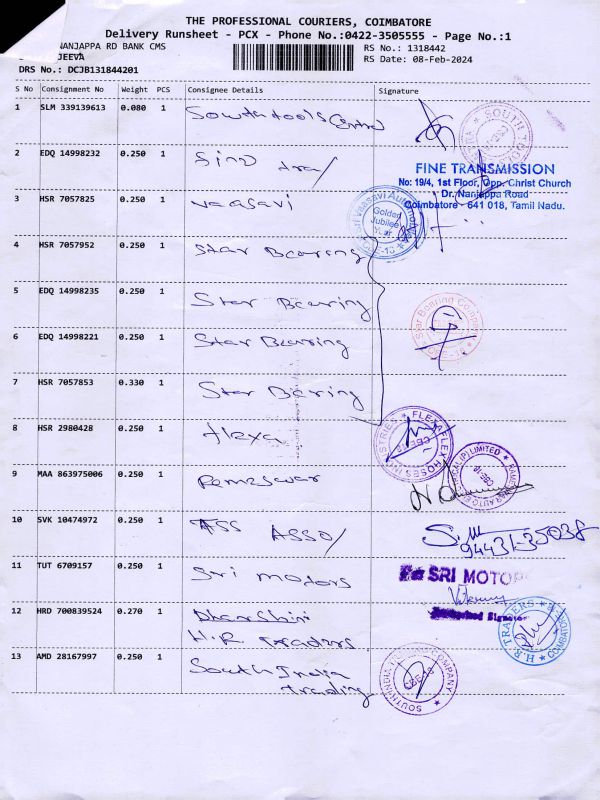 THE PROFESSIONAL COURIERS, COIMBATORE
Delivery Runsheet - PCX - Phone No.:0422-3505555 - Page No.:1
NANJAPPA RD BANK CMS
RS No.: 1318442
JEEVA
RS Date: 08-Feb-2024
DRS No.: DCJB131844201
S No Consignment No Weight PCS Consignee Details Signature
1 SLM 339139613 0.080 1 Southtools Central
2 EDQ 14998232 0.250 1
FINE TRANSMISSION
No: 19/4, 1st Floor, Opp. Christ Church
Dr. Nanjappa Road
Coimbatore - 641 018, Tamil Nadu.
3 HSR 7057825 0.250 1 Vaasavi
Golden
Jubilee
Year
4 HSR 7057952 0.250 1 Star Bearing
5 EDQ 14998235 0.250 1 Star Bearing
6 EDQ 14998221 0.250 1 Star Bearing
Star Bearing Company
7 HSR 7057853 0.330 1 Star Bearing
8 HSR 2980428 0.250 1 flexa
FLEXAFLEX HOSES INDUSTRIES
9 MAA 863975006 0.250 1 Rameswar
10 SVK 10474972 0.250 1 ASS ASSO/
94431-35038
11 TUT 6709157 0.250 1 Sri motors
For SRI MOTORS
12 HRD 700839524 0.270 1 Dharshini
H.R Traders
H.R. TRADERS
13 AMD 28167997 0.250 1 South India
trading
SOUTH INDIA TRADING COMPANY
CBE-18